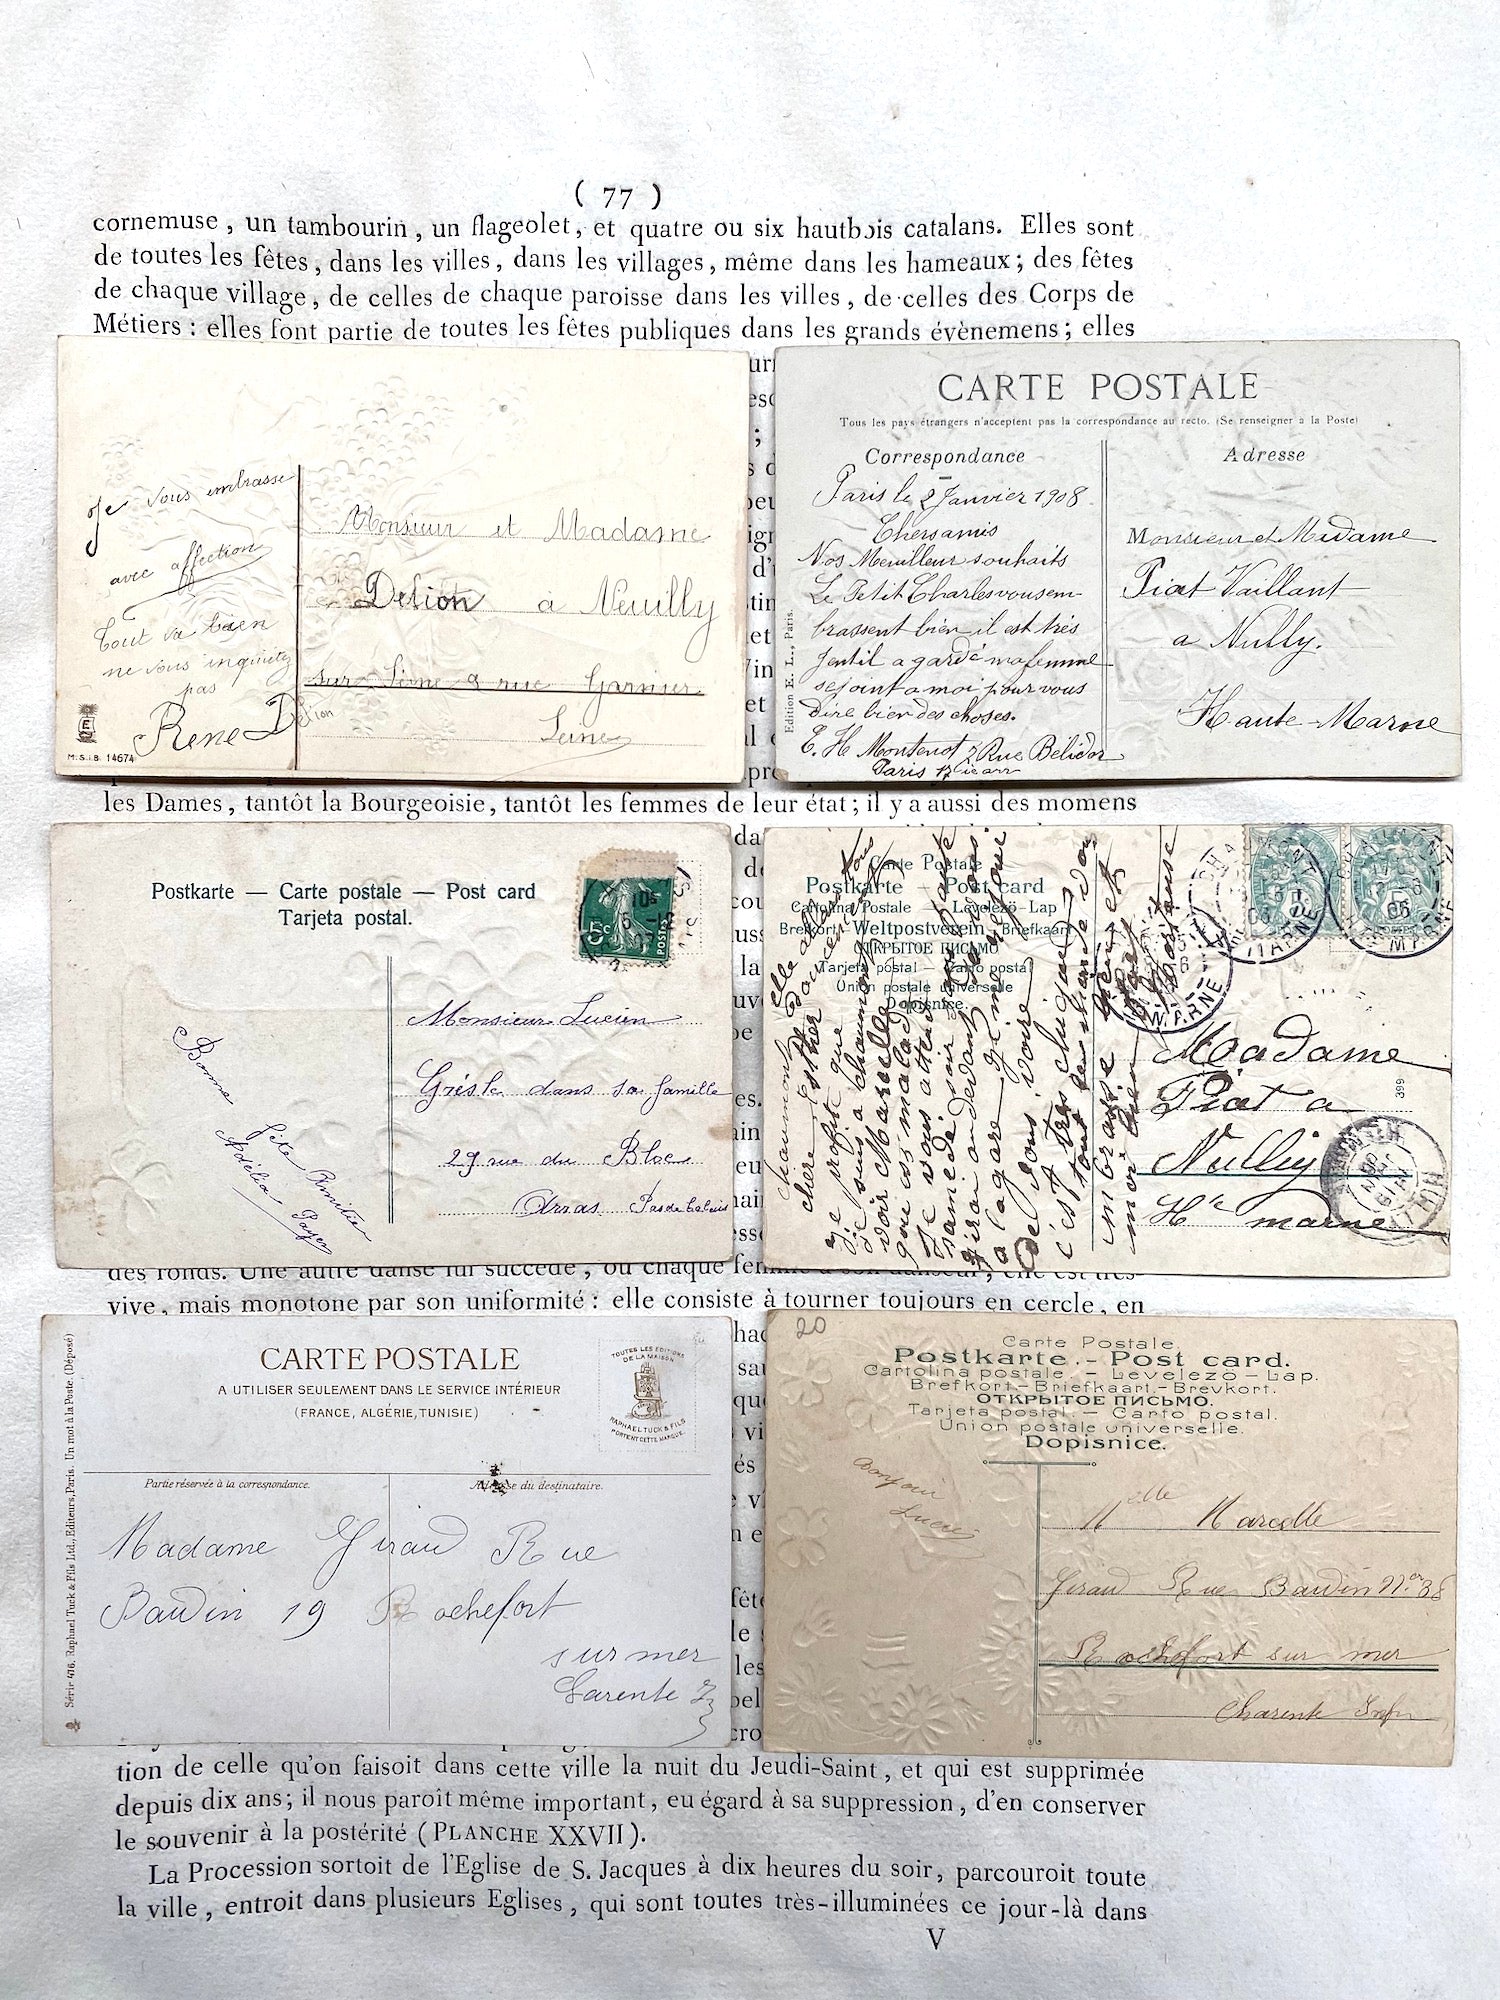 ( 77 )
cornemuse, un tambourin, un flageolet, et quatre ou six hautbois catalans. Elles sont
de toutes les fêtes, dans les villes, dans les villages, même dans les hameaux; des fêtes
de chaque village, de celles de chaque paroisse dans les villes, de celles des Corps de
Métiers : elles font partie de toutes les fêtes publiques dans les grands évènemens; elles
Je vous embrasse
avec affection
Tout va bien
ne vous inquietez
pas
Rene D
M.S.i.B. 14674
Monsieur et Madame
Delion à Neuilly
sur Seine 9 rue Garnier
Seine
CARTE POSTALE
Tous les pays étrangers n'acceptent pas la correspondance au recto. (Se renseigner à la Poste)
Correspondance
Adresse
Edition E. L., Paris.
Paris le 2 Janvier 1908
Chers amis
Nos Meuilleur souhaits
Le Petit Charles vous em-
brassent bien il est très
Jentil a gardé ma femme
se joint a moi pour vous
dire bien des choses.
E. H Montenot 7 Rue Belidor
Paris
Monsieur et Madame
Piat Vaillant
a Nully.
Haute-Marne
les Dames, tantôt la Bourgeoisie, tantôt les femmes de leur état; il y a aussi des momens
Postkarte — Carte postale — Post card
Tarjeta postal.
5c
Postes
Bonne
fête Amitié
Adélia Payen
Monsieur Lucien
Grésle dans sa famille
29 rue du Bloc
Arras Pas de Calais
Carte Postale
Postkarte — Post card
Cartolina Postale — Levelezö-Lap
Brefkort-Weltpostverein-Briefkaart
ОТКРЫТОЕ ПИСЬМО
Tarjeta postal — Carto postal
Union postale universelle
Dopisnice.
chaumont
chere Esther
je profit que
je suis a chaumont
voir Marcelle
qui es malad
Je vous attend
samedi soir
giron au devant
a la gare
de vous voire
c'est très
embrasse
399
MARNE
Madame
Piat a
Nulliy
Hte marne
des ronds. Une autre danse lui succède, où chaque
vive, mais monotone par son uniformité : elle consiste à tourner toujours en cercle, en
CARTE POSTALE
A UTILISER SEULEMENT DANS LE SERVICE INTÉRIEUR
(FRANCE, ALGÉRIE, TUNISIE)
TOUTES LES EDITIONS
DE LA MAISON
RAPHAEL TUCK & FILS
PORTENT CETTE MARQUE.
Partie réservée à la correspondance.
Adresse du destinataire.
Série 476. Raphael Tuck & Fils Ltd., Editeurs, Paris. Un mot à la Poste. (Déposé)
Madame Giraud Rue
Baudin 19 Rochefort
sur mer
Carente
20
Carte Postale.
Postkarte. - Post card.
Cartolina postale. - Levelezö-Lap.
Brefkort-Briefkaart-Brevkort.
ОТКРЫТОЕ ПИСЬМО.
Tarjeta postal. - Carto postal.
Union postale universelle.
Dopisnice.
Bonjour
Melle Marcelle
Giraud Rue Baudin
Rochefort sur mer
Charente Infer
tion de celle qu'on faisoit dans cette ville la nuit du Jeudi-Saint, et qui est supprimée
depuis dix ans; il nous paroît même important, eu égard à sa suppression, d'en conserver
le souvenir à la postérité (PLANCHE XXVII).
La Procession sortoit de l'Eglise de S. Jacques à dix heures du soir, parcouroit toute
la ville, entroit dans plusieurs Eglises, qui sont toutes très-illuminées ce jour-là dans
V